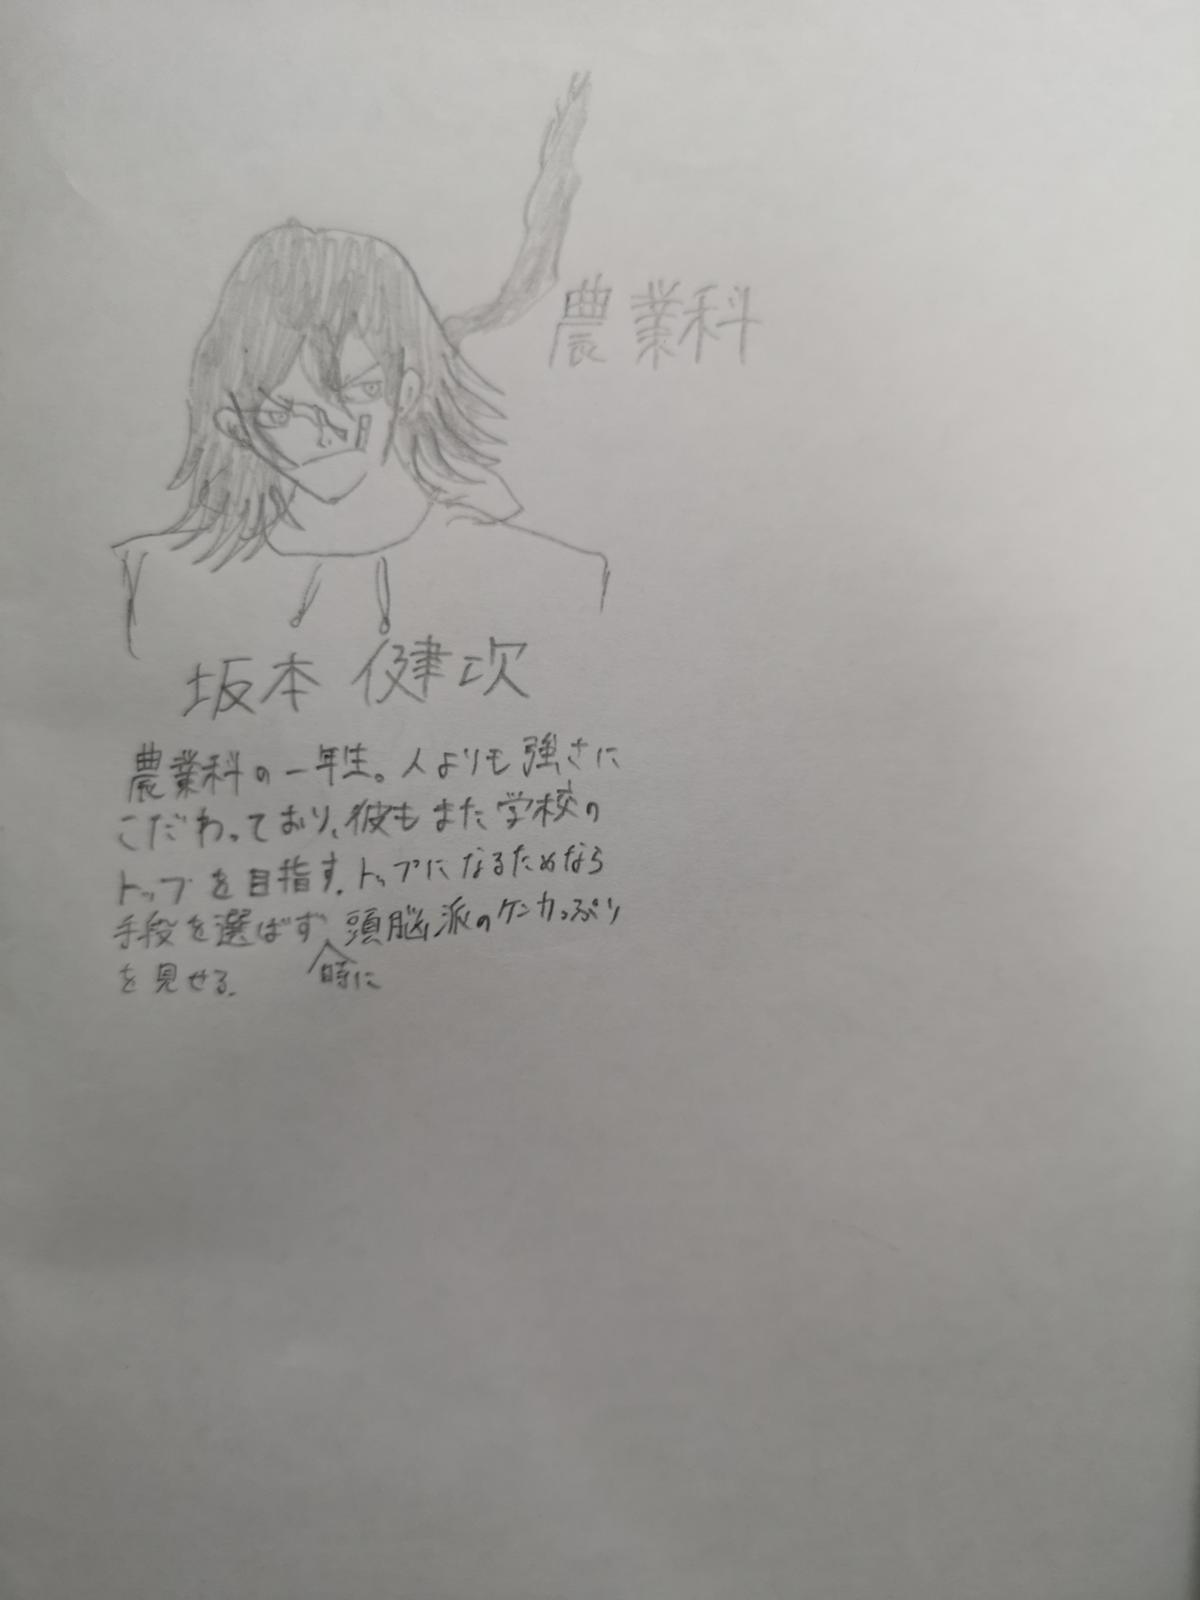 農業科
坂本 健次
農業科の一年生。人よりも強さに
こだわっており、彼もまた学校の
トップを目指す。トップになるためなら
手段を選ばず頭脳派のケンカっぷり
を見せる。 時に